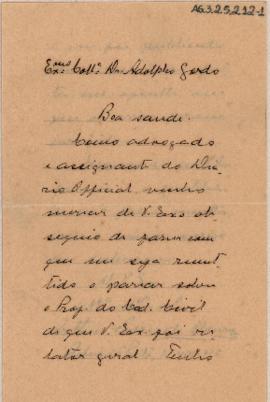 AG.3.25.2.12-1
Exmo. Coll. Dr. Adolpho Gordo
Boa saude.
Como advogado
e assignante do Dia
rio Official, venho
merecer de V. Exa ob
sequio de fazer com
que me seja remet
tido o parecer sobre
o Proj. do Cod. Civil
de que V. Exa foi re
lator geral. Tenho